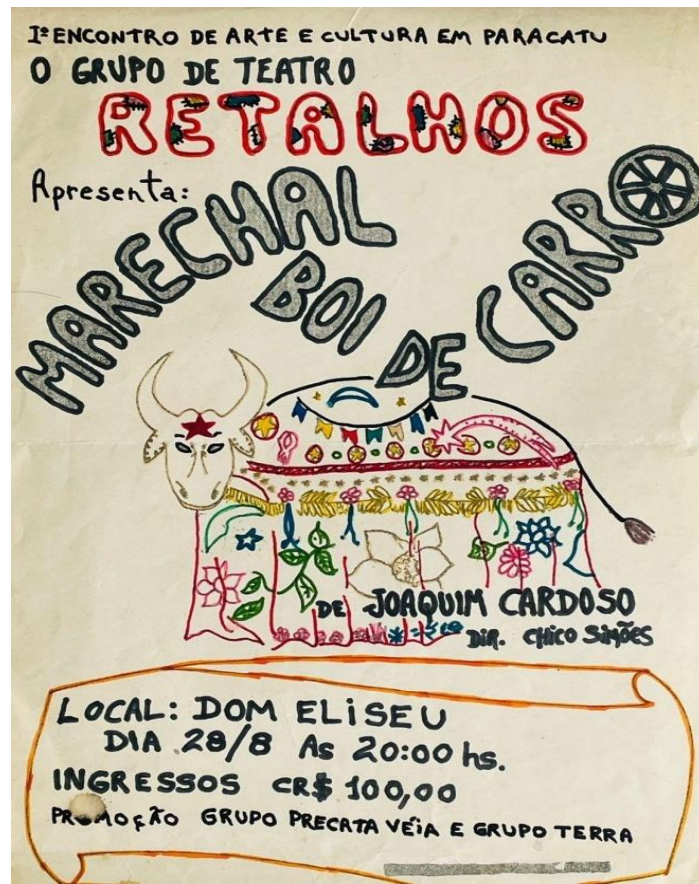 Iº ENCONTRO DE ARTE E CULTURA EM PARACATU
O GRUPO DE TEATRO
RETALHOS
Apresenta:
MARECHAL
BOI DE CARRO
DE JOAQUIM CARDOSO
DIR. CHICO SIMÕES
LOCAL: DOM ELISEU
DIA 28/8 AS 20:00 hs.
INGRESSOS CR$ 100,00
PROMOÇÃO GRUPO PRECATA VÉIA E GRUPO TERRA